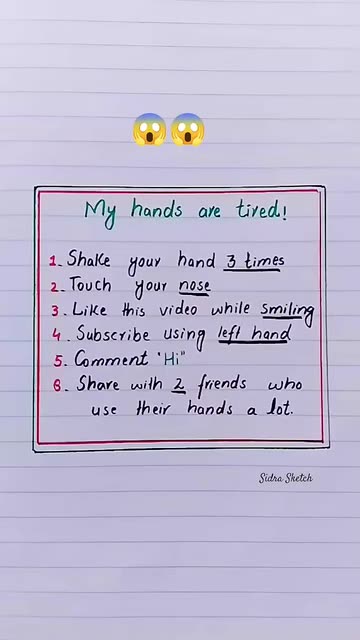 My hands are tired!
1. Shake your hand 3 times
2. Touch your nose
3. Like this video while smiling
4. Subscribe using left hand
5. Comment "Hi"
6. Share with 2 friends who
use their hands a lot.
Sidra Sketch